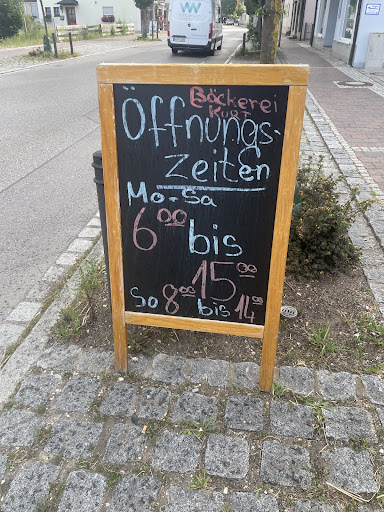 Bäckerei
Kurt
Öffnungs-
zeiten
Mo-Sa
6⁰⁰ bis
15⁰⁰
So 8⁰⁰ bis 14⁰⁰